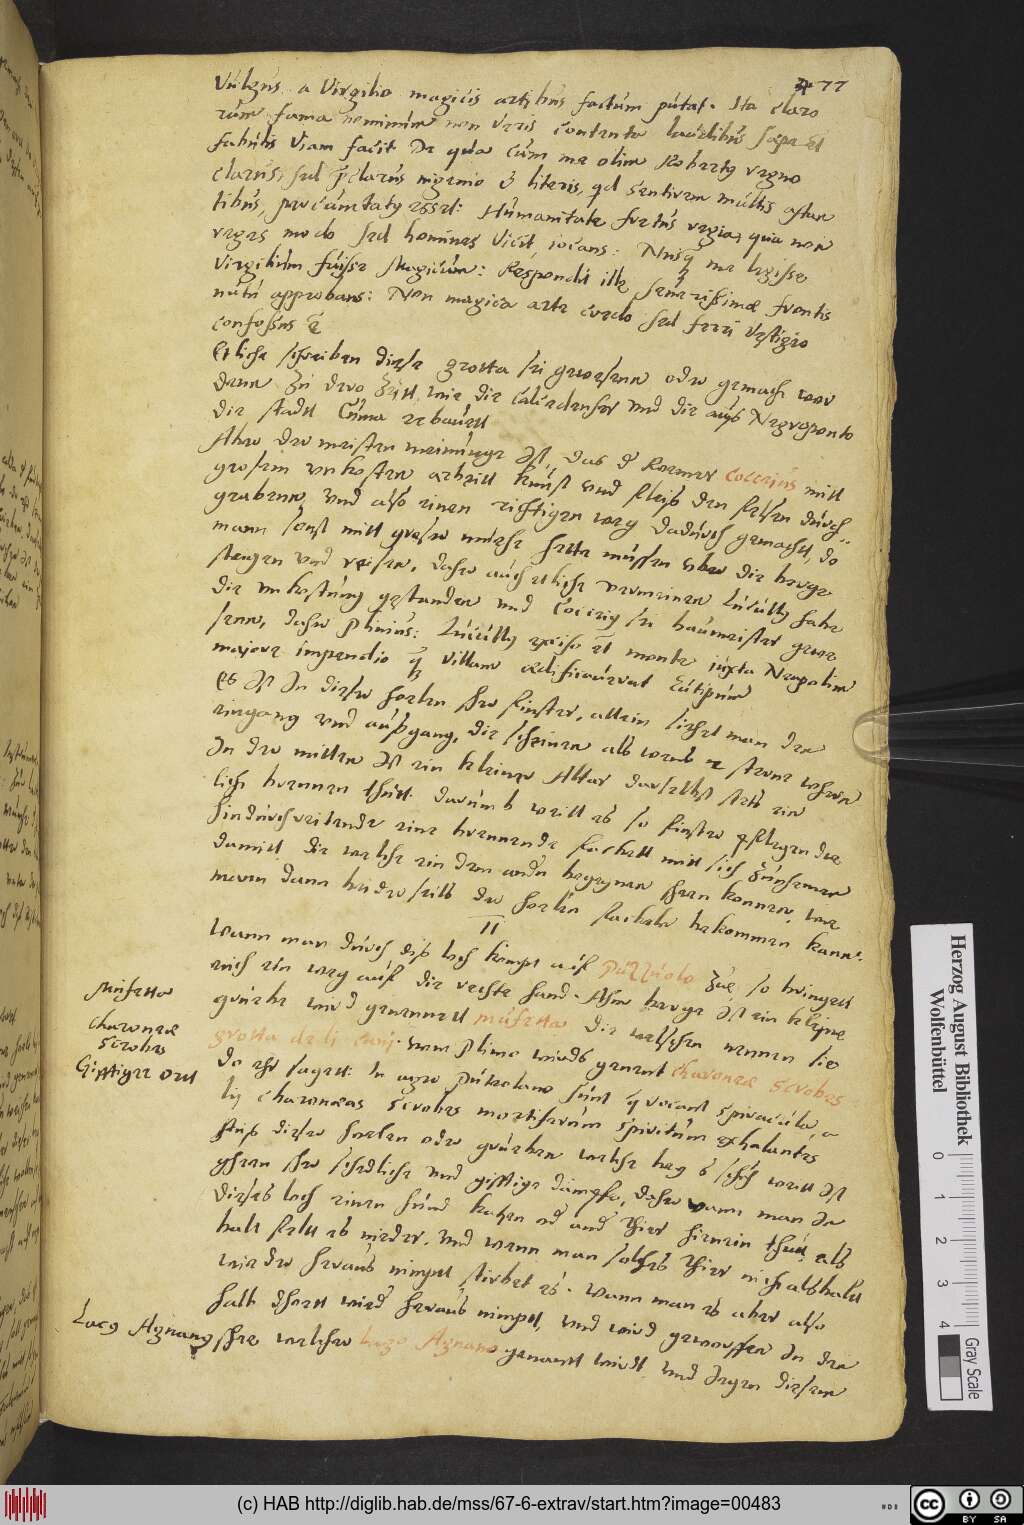 477
Vulgus a Virgilio magicis artibus factum putat. Ita claro
rum fama hominum non veris contenta laudibus sæpe et
fabulis viam facit De qua cum me olim Robertus regno
clarus, sed præclarus ingenio et literis, qd sentirem multis astan
tibus, percunctatus esset: Humanitate fretus regia, qua non
reges modo sed homines vicit, iocans: Nusq me legisse
Virgilium fuisse Magicum: Respondit ille severissimæ frontis
nutu approbans: Non magica arte credo sed ferri vestigio
confossus
Etliche schreiben diese grotta sei gewesenn oder gemacht wor
denn zu dero zeitt wie die calcedenser und die aus Negroponto
die stadt Cuma erbauett
Aber der meisten meinunge ist, das d Roemer Cocceius mitt
grosem unkosten arbeitt kunst und fleiß den felsen durch
grabenn, und also einen richtigen weg dadurch gemacht, do
mann sonst mitt groser muehe hatte müssen uber die berge
steigen und reisen, daher auch etliche vermeinen Lucullus habe
die unkostung gestanden und Cocceius sei baumeister gewe
senn, daher Plinius: Lucullus exciso et monte iuxta Neapolim
majore impendio q villam ædificauerat
Es ist in dieser hoelen sehr finster, allein siehet man den
eingang und außgang, die scheinen als wens 2 sterne wehren
In der mitten ist ein kleiner Altar daselbst stets ein
licht brennen thutt. darumb weill es so finster pflegen die
hindurchreitende eine brennende fackell mitt sich zunehmen
damitt die welche ein dem andn begegnen sehen konnen, wie
mann dann beiderseits der hoelen fackeln bekommen kann.
II
Wann man durch diß loch kompt auf Puzzuolo zue, so bringett
mich ein weg auf die rechte hand. Ahm berge ist ein kleine
grube wird genennett mufetta die welschen nennen sie
grotta deli cani. vom Plinio wirds genent charoneæ scrobes
do ehr saget: In agro puteolano sunt q vocant spiracula, a
lij charoneas scrobes mortiferum spiritum exhalantes
Auß dieser hoelen oder grueben welche
gehen sehr schedliche und gifftige dämpfe, daher wann man in
dieses loch einen hund katzen od and thier hinnein thutt als
balt felt es nieder. und wenn man solches thier nicht alsbalt
wieder heraus nimpt stirbet es. Wann man es aber also
halb thott wied heraus nimpt, und wird geworffen in den
sehe welcher lago Agnano genannt wirdt, und degen diesem
Mufetta
charoneæ
scrobes
Gifftiger ort
Lacus Agnanus
Herzog August Bibliothek
Wolfenbüttel
0
1
2
3
4
Gray Scale
(c) HAB http://diglib.hab.de/mss/67-6-extrav/start.htm?image=00483
BY SA